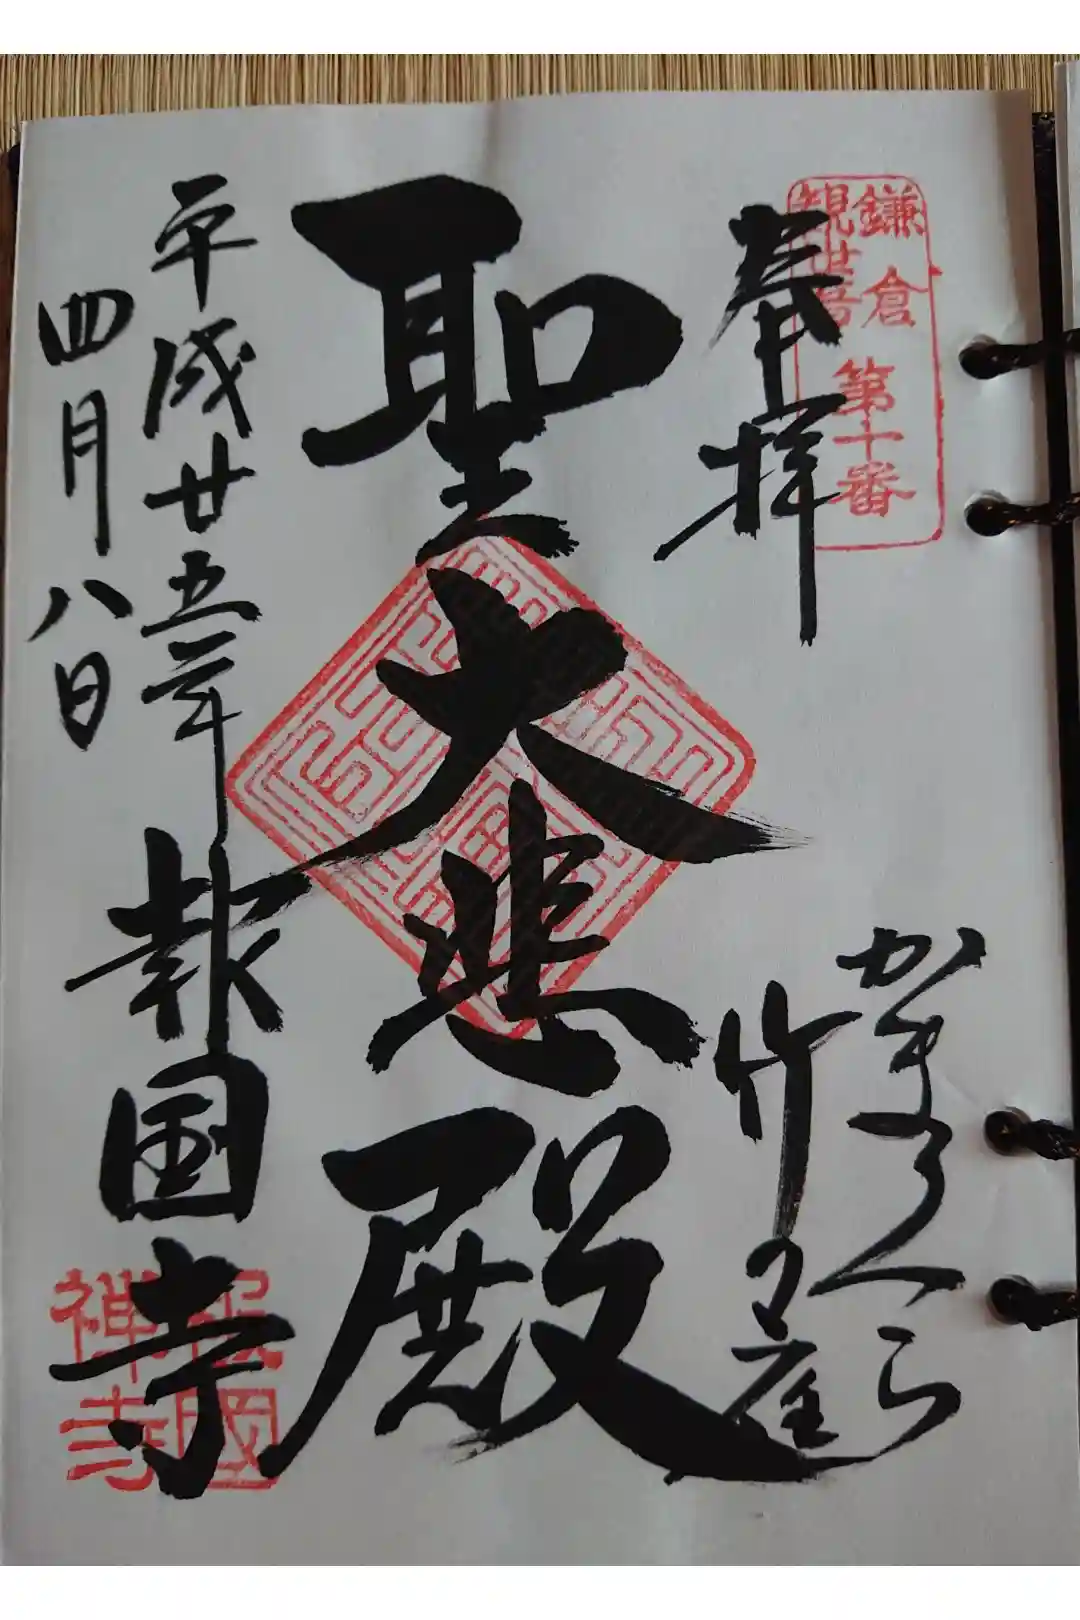 鎌倉
観世音
第十番
奉拝
かまくら
竹の庭
聖大悲殿
平成廿五年
四月八日
報国寺
報國
禅寺